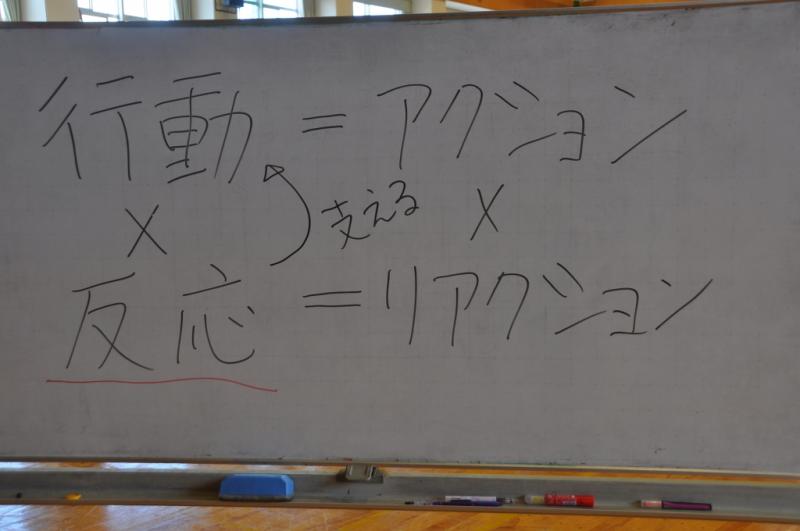 行動＝アクション
×　支える　×
反応＝リアクション